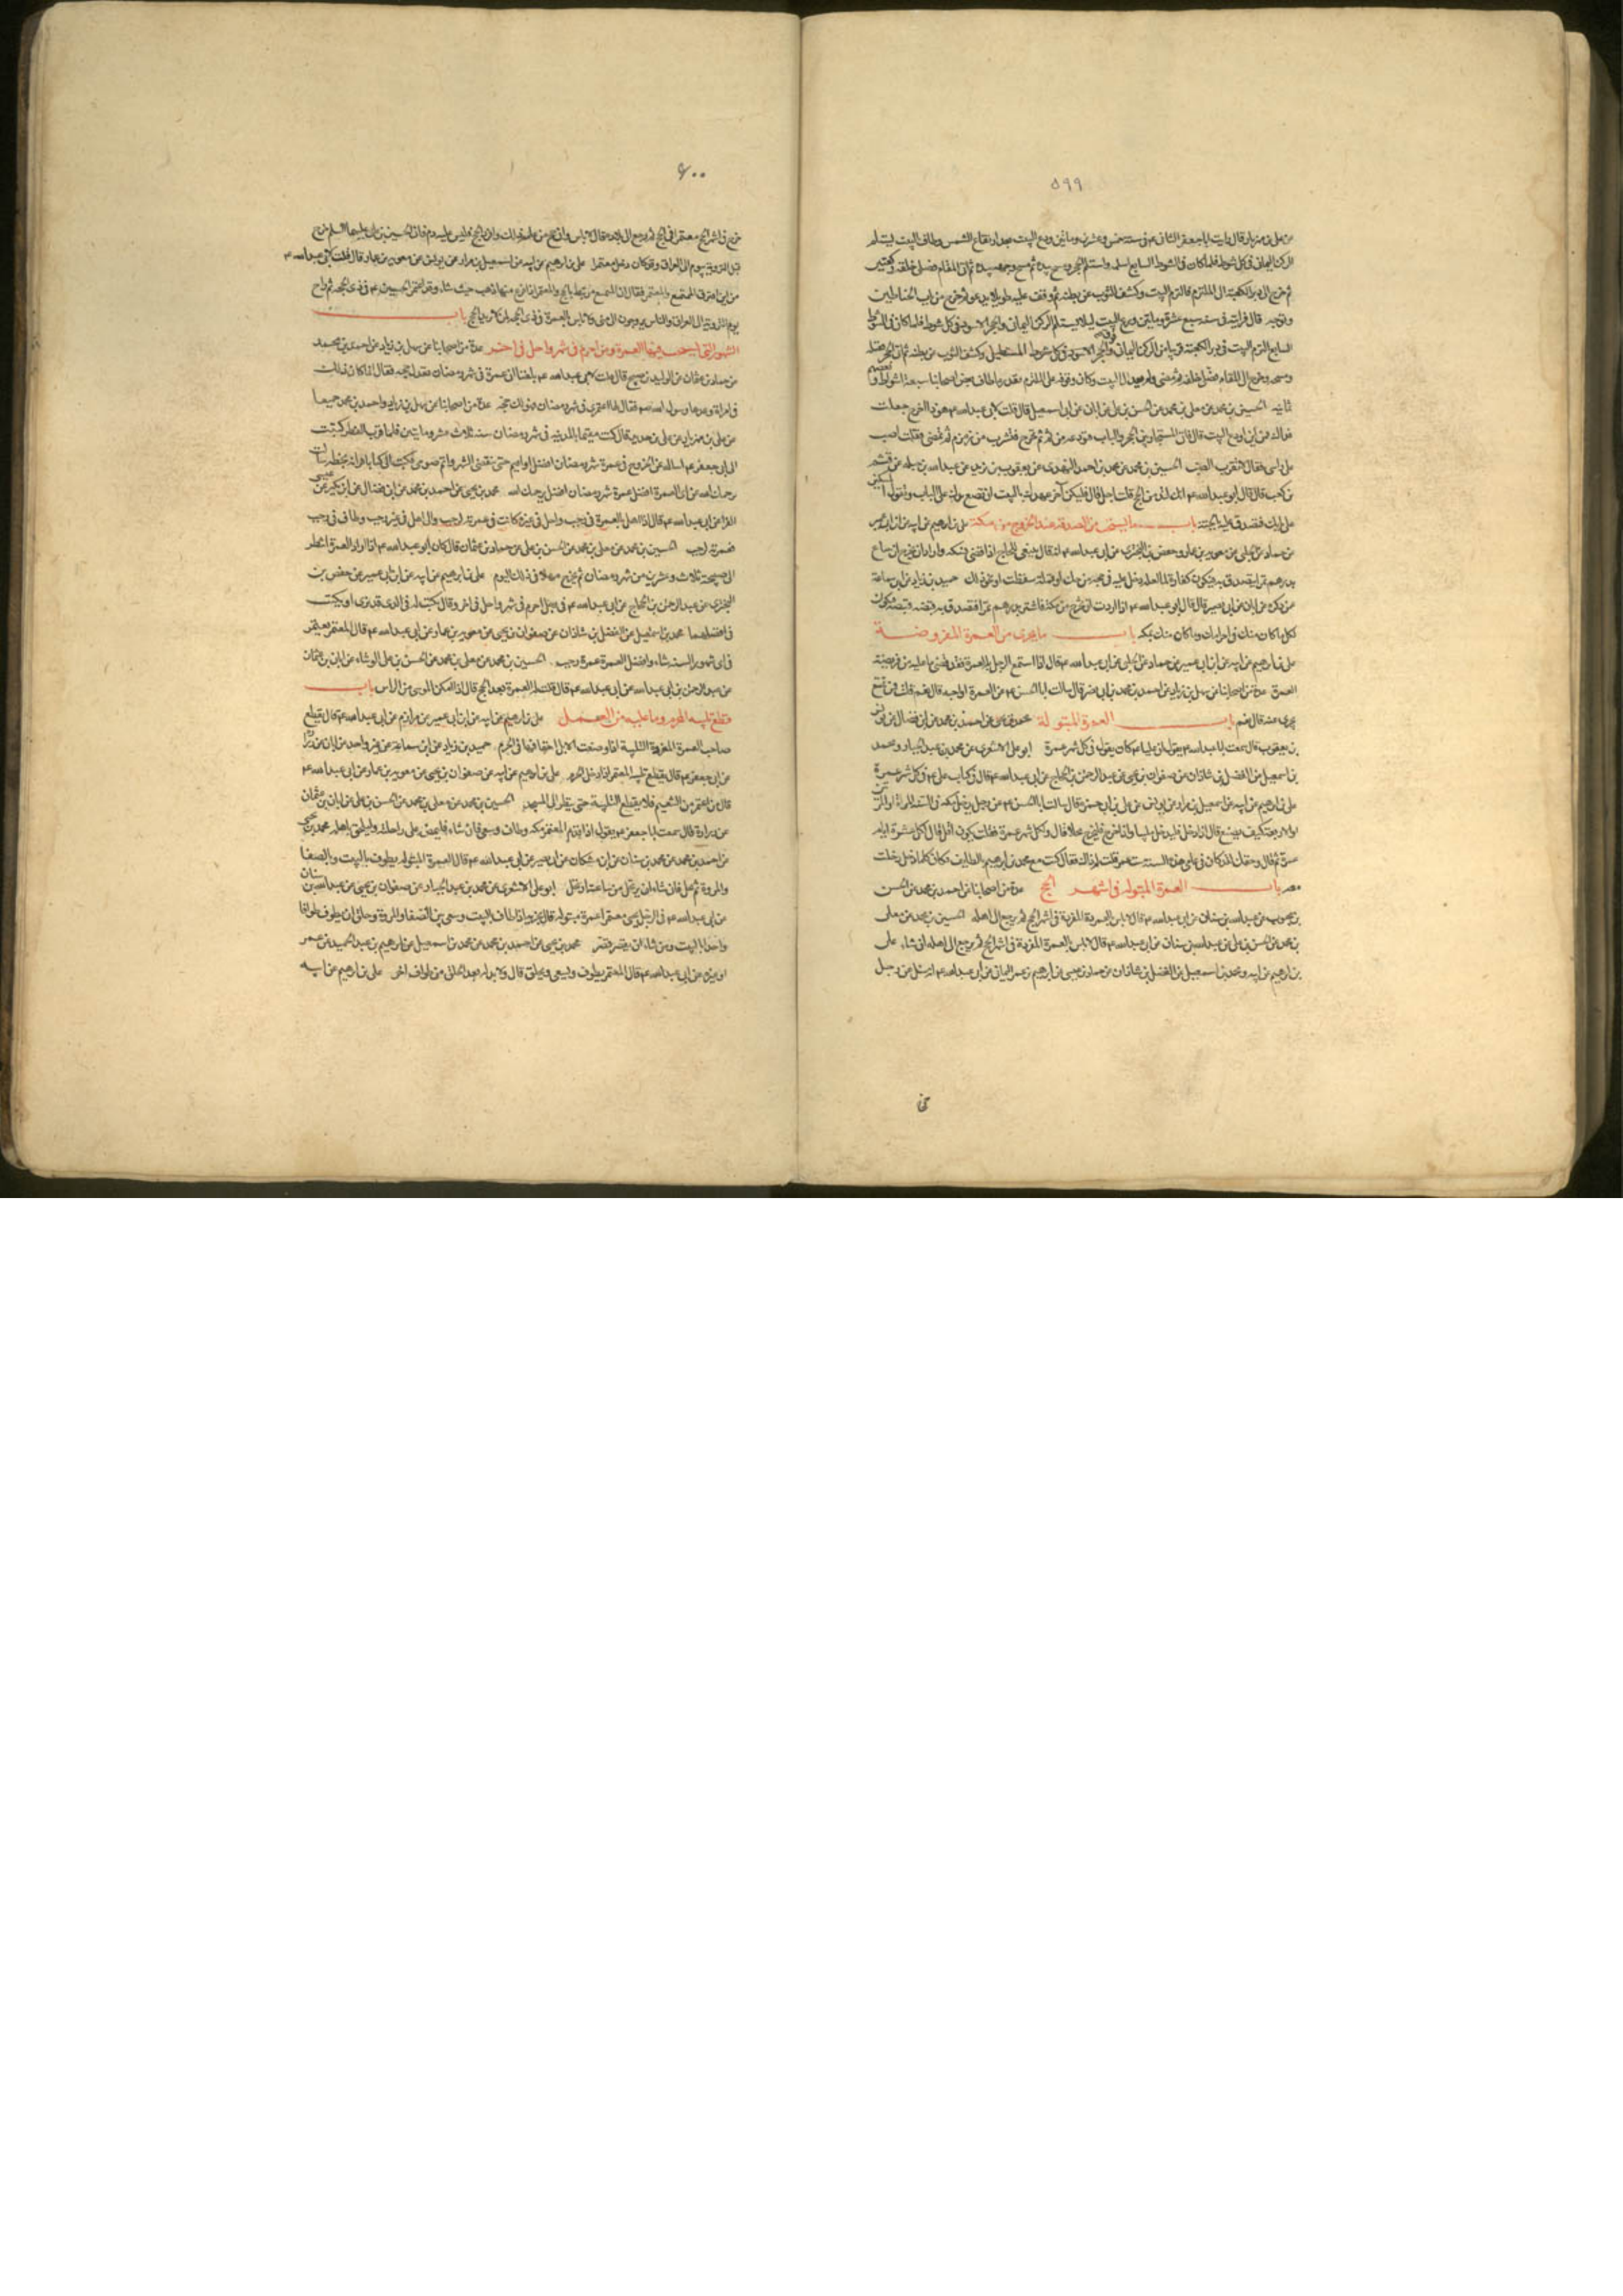 ٥٩٩
عن علي بن مهزيار قال رايت ابا جعفر الثاني ع في سنة خمس وعشرين ومائتين ودع البيت بعد ارتفاع الشمس وطاف البيت يستلم
الركن اليماني في كل شوط فلما كان في الشوط السابع استلمه واستلم الحجر ومسح بيده ثم مسح وجهه بيده ثم اتى المقام فصلى خلفه ركعتين
ثم خرج الى دبر الكعبة الى الملتزم فالتزم البيت وكشف الثوب عن بطنه ثم وقف عليه طويلا يدعو ثم خرج من باب الحناطين
وتوجه قال فرايته في سنة سبع عشرة ومايتين ودع البيت ليلا يستلم الركن اليماني والحجر الاسود في كل شوط فلما كان في الشوط
السابع التزم البيت في دبر الكعبة قريبا من الركن اليماني وفوق الحجر المستطيل وكشف الثوب عن بطنه ثم اتى الحجر فقبله
ومسحه وخرج الى المقام فصلى خلفه ثم مضى ولم يعد الى البيت وكان وقوفه على الملتزم بقدر ما طاف بعض اصحابنا سبعة اشواط وبعضهم
ثمانية الحسين بن محمد عن معلى بن محمد عن الحسن بن علي عن ابان عن ابي اسمعيل قال قلت لابي عبدالله ع هوذا اخرج جعلت
فداك فمن اين اودع البيت قال تاتي المستجار بين الحجر والباب فتودعه من ثم ثم تخرج فتشرب من زمزم ثم تمضي فقلت اصب
على راسي فقال لا تقرب الصب الحسين بن محمد عن محمد بن احمد النهدي عن يعقوب بن يزيد عن عبدالله بن جبلة عن قثم
بن كعب قال قال ابو عبدالله ع انك لتدمن الحج قلت اجل قال فليكن آخر عهدك بالبيت ان تضع يدك على الباب وتقول المسكين
على بابك فتصدق عليه بالجنة باب ما يستحب من الصدقة عند الخروج من مكة علي بن ابراهيم عن ابيه عن ابن ابي عمير
عن حماد عن الحلبي عن معوية بن عمار وحفص بن البختري عن ابي عبدالله ع انه قال ينبغي للحاج اذا قضى نسكه واراد ان يخرج ان يبتاع
بدرهم تمرا يتصدق به فيكون كفارة لما لعله دخل عليه في حجه من حك او قملة سقطت او نحو ذلك حميد بن زياد عن ابن سماعة
عمن ذكره عن ابان عن ابي بصير قال قال ابو عبدالله ع اذا اردت ان تخرج من مكة فاشتر بدرهم تمرا فتصدق به قبضة قبضة فيكون
لكل ما كان منك في احرامك وما كان منك بمكة باب ما يجزى من العمرة المفروضة
علي بن ابراهيم عن ابيه عن ابن ابي عمير عن حماد عن الحلبي عن ابي عبدالله ع قال اذا استمتع الرجل بالعمرة فقد قضى ما عليه من فريضة
العمرة عدة من اصحابنا عن سهل بن زياد عن احمد بن محمد بن ابي نصر قال سالت ابا الحسن ع عن العمرة اواجبة قال نعم قلت فمن تمتع
يجزي عنه قال نعم باب العمرة المبتولة محمد بن يحيى عن احمد بن محمد عن ابن فضال عن يونس
بن يعقوب قال سمعت ابا عبدالله ع يقول ان عليا ع كان يقول في كل شهر عمرة ابو علي الاشعري عن محمد بن عبد الجبار ومحمد
بن اسمعيل عن الفضل بن شاذان عن صفوان بن يحيى عن عبد الرحمن بن الحجاج عن ابي عبدالله ع قال في كتاب علي ع في كل شهر عمرة
علي بن ابراهيم عن ابيه عن اسمعيل بن مرار عن يونس عن علي بن ابي حمزة قال سالت ابا الحسن ع عن رجل يدخل مكة في السنة المرة او المرتين
او الاربعة كيف يصنع قال اذا دخل فليدخل ملبيا واذا خرج فليخرج محلا قال ولكل شهر عمرة فقلت يكون اقل قال لكل عشرة ايام
عمرة ثم قال وحقك لقد كان في عامي هذه السنة ست عمر قلت لم ذاك فقال كنت مع محمد بن ابراهيم بالطايف فكان كلما دخل دخلت
معه باب العمرة المبتولة في اشهر الحج عدة من اصحابنا عن احمد بن محمد عن الحسن
بن محبوب عن عبدالله بن سنان عن ابي عبدالله ع قال لا باس بالعمرة المفردة في اشهر الحج ثم يرجع الى اهله الحسين بن محمد عن معلى
بن محمد عن الحسن بن علي عن عبدالله بن سنان عن ابي عبدالله ع قال لا باس بالعمرة المفردة في اشهر الحج ثم يرجع الى اهله ان شاء علي
بن ابراهيم عن ابيه ومحمد بن اسمعيل عن الفضل بن شاذان عن حماد بن عيسى عن ابراهيم بن عمر اليماني عن ابي عبدالله ع انه سئل عن رجل
٦٠٠
خرج في اشهر الحج معتمرا ثم رجع الى بلاده قال لا باس وان حج من عامه ذلك وافرد الحج فليس عليه دم فان الحسين بن علي عليهما السلم خرج
قبل التروية بيوم الى العراق وقد كان دخل معتمرا علي بن ابراهيم عن ابيه عن اسمعيل بن مرار عن يونس عن معوية بن عمار قال قلت لابي عبدالله ع
من اين افترق المتمتع والمعتمر فقال ان المتمتع مرتبط بالحج والمعتمر اذا فرغ منها ذهب حيث شاء وقد اعتمر الحسين ع في ذي الحجة ثم راح
يوم التروية الى العراق والناس يروحون الى منى ولا باس بالعمرة في ذي الحجة لمن لا يريد الحج باب
الشهور التي تستحب فيها العمرة ومن احرم في شهر واحل في اخر عدة من اصحابنا عن سهل بن زياد عن احمد بن محمد
عن حماد بن عثمان عن الوليد بن صبيح قال قلت لابي عبدالله ع بلغنا ان عمرة في شهر رمضان تعدل حجة فقال انما كان ذلك
في امراة وعدها رسول الله صلعم فقال لها اعتمري في شهر رمضان فهو لك حجة عدة من اصحابنا عن سهل بن زياد واحمد بن محمد جميعا
عن علي بن مهزيار عن علي بن حديد قال كنت مقيما بالمدينة في شهر رمضان سنة ثلاث عشر ومايتين فلما قرب الفطر كتبت
الى ابي جعفر ع اساله عن الخروج في عمرة شهر رمضان افضل او اقيم حتى ينقضي الشهر واتم صومي فكتب الي كتابا قراته بخطه سالت
رحمك الله عن اي العمرة افضل عمرة شهر رمضان افضل يرحمك الله محمد بن يحيى عن احمد بن محمد عن ابن فضال عن ابن بكير عن عيسى
الفرا عن ابي عبدالله ع قال اذا اهل بالعمرة في رجب واحل في غيره كانت في عمرته لرجب واذا اهل في غير رجب وطاف في رجب
فعمرته لرجب الحسين بن محمد عن معلى بن محمد عن الحسن بن علي عن حماد بن عثمان قال كان ابو عبدالله ع اذا اراد العمرة انتظر
الى صبيحة ثلاث وعشرين من شهر رمضان ثم يخرج مهلا في ذلك اليوم علي بن ابراهيم عن ابيه عن ابن ابي عمير عن حفص بن
البختري عن عبد الرحمن بن الحجاج عن ابي عبدالله ع في رجل احرم في شهر واحل في اخر وقال يكتب له في الذي قد نوى او يكتب
في افضلهما محمد بن اسمعيل عن الفضل بن شاذان عن صفوان بن يحيى عن معوية بن عمار عن ابي عبدالله ع قال المعتمر يعتمر
في اي شهور السنة شاء وافضل العمرة عمرة رجب الحسين بن محمد عن معلى بن محمد عن الحسن بن علي الوشاء عن ابان بن عثمان
عن عبد الرحمن بن ابي عبدالله عن ابي عبدالله ع قال قلت له العمرة بعد الحج قال اذا امكن الموسى من الراس باب
قطع تلبية المحرم وما عليه من العمل علي بن ابراهيم عن ابيه عن ابن ابي عمير عن مرازم عن ابي عبدالله ع قال يقطع
صاحب العمرة المفردة التلبية اذا وضعت الابل اخفافها في الحرم حميد بن زياد عن ابن سماعة عن غير واحد عن ابان عن زرارة
عن ابي جعفر ع قال يقطع تلبية المعتمر اذا دخل الحرم علي بن ابراهيم عن ابيه عن صفوان بن يحيى عن معوية بن عمار عن ابي عبدالله ع
قال من اعتمر من التنعيم فلا يقطع التلبية حتى ينظر الى المسجد الحسين بن محمد عن معلى بن محمد عن الحسن بن علي عن ابان بن عثمان
عن زرارة قال سمعت ابا جعفر ع يقول اذا قدم المعتمر مكة وطاف وسعى فان شاء فليمض على راحلته وليلحق باهله محمد بن يحيى
عن احمد بن محمد عن محمد بن سنان عن ابن مسكان عن ابي بصير عن ابي عبدالله ع قال العمرة المبتولة يطوف بالبيت وبالصفا
والمروة ثم يحل فان شاء ان يرتحل من ساعته ارتحل ابو علي الاشعري عن محمد بن عبد الجبار عن صفوان بن يحيى عن عبدالله بن سنان
عن ابي عبدالله ع في الرجل يجيء معتمرا عمرة مبتولة قال يجزيه اذا طاف بالبيت وسعى بين الصفا والمروة وحلق ان يطوف طوافا
واحدا بالبيت ومن شاء ان يقصر قصر محمد بن يحيى عن احمد بن محمد عن محمد بن اسمعيل عن ابراهيم بن عبد الحميد عن عمر
او غيره عن ابي عبدالله ع قال المعتمر يطوف ويسعى ويحلق قال ولا بد له بعد الحلق من طواف اخر علي بن ابراهيم عن ابيه